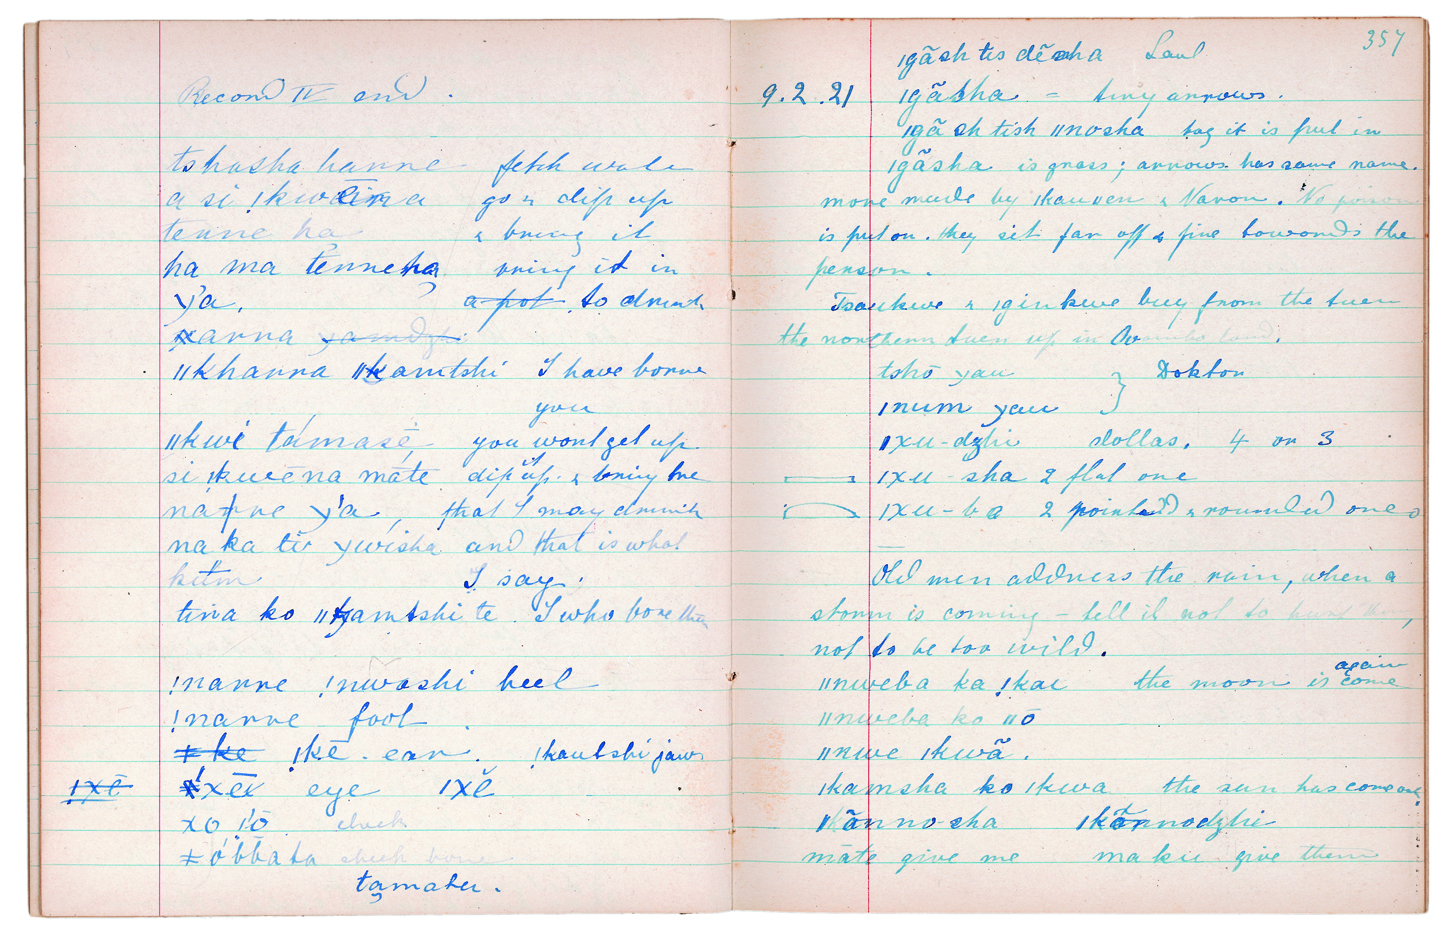 Record IV end.
tshasha hanne fetch wate
a si !kwēina go & dip up
tenne ha & bring it
ha ma tenneha bring it in
ya. a pot to drink
xanna yamdzi
ǁkhanna ǁkamtshi I have borne
you
ǁkwe támasé, you wont get up
si !kwēna māte dip it up & bring me
na ya, that I may drink
na ka tir ywisha and that is what
kum I say.
tina ko ǁkamtshi te I who bore them
!narre !nwashi heel
!narre foot.
ǂke !kē. ear. !kautshi jaws
ǀxē ǀxēx eye ǀxĕ
xo ǀō cheek
ǂ óbbata cheek bone
tamaber.
357
ǀgãsh tis dẽsha Saul
9.2.21 ǀgãsha = tiny arrows.
ǀgãsh tish ǁnosha bag it is put in
ǀgãsha is grass; arrows has same name.
more made by ǀkauen & Naron. No poison
is put on. they sit far off & fire towards the
person.
Tsaukwe & ǀginkwe buy from the tuen
the northern tuen up in Ovamboland.
tshō yau } Doktor
ǀnum yau
ǀxu-dzhi dollas. 4 or 3
ǀxu-sha 2 flat one
ǀxu-ba 2 pointed & rounded ones
Old men address the rain, when a
storm is coming – tell it not to hurt them,
not to be too wild.
again
ǁnweba ka !kai the moon is come
ǁnweba ko ǁō
ǁnwe ǀkwã.
ǀkamsha ko ǀkwa the sun has come out,
ǀkãnno-sha ǀkãnnodzhi
māte give me makii give them